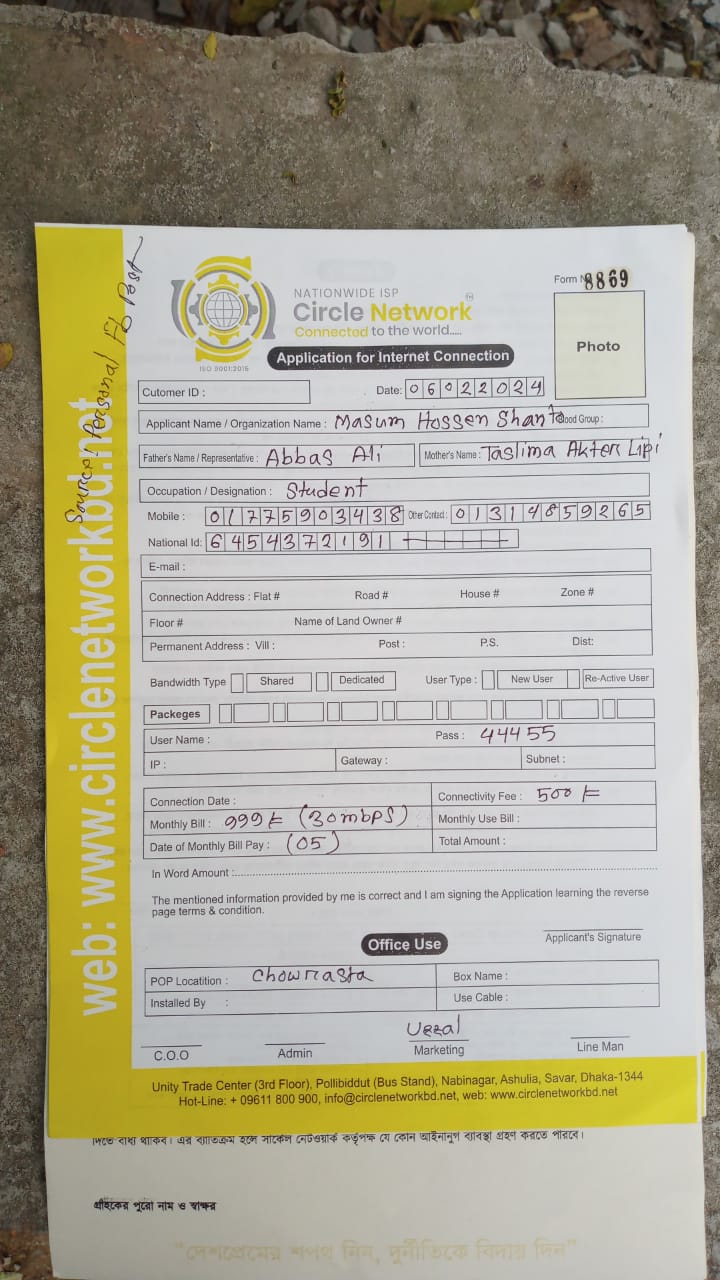 Source: Personal Fb Post
web: www.circlenetworkbd.net
NATIONWIDE ISP
Circle Network
Connected to the world.....
ISO 9001:2015
Form N 8869
Photo
Application for Internet Connection
Cutomer ID :
Date: 06022024
Applicant Name / Organization Name : Masum Hossen Shanto ood Group :
Father's Name / Representative : Abbas Ali
Mother's Name : Taslima Akter Lipi
Occupation / Designation : Student
Mobile : 01775903438 Other Contact : 01314859265
National Id: 6454372191
E-mail :
Connection Address : Flat # Road # House # Zone #
Floor # Name of Land Owner #
Permanent Address : Vill : Post : P.S. Dist:
Bandwidth Type Shared Dedicated User Type : New User Re-Active User
Packeges
User Name : Pass : 44455
IP : Gateway : Subnet :
Connection Date : Connectivity Fee : 500/=
Monthly Bill : 999/= (30mbps) Monthly Use Bill :
Date of Monthly Bill Pay : (05) Total Amount :
In Word Amount :
The mentioned information provided by me is correct and I am signing the Application learning the reverse
page terms & condition.
Applicant's Signature
Office Use
POP Locatition : Chowrasta Box Name :
Installed By : Use Cable :
Uzzal
C.O.O Admin Marketing Line Man
Unity Trade Center (3rd Floor), Pollibiddut (Bus Stand), Nabinagar, Ashulia, Savar, Dhaka-1344
Hot-Line: + 09611 800 900, info@circlenetworkbd.net, web: www.circlenetworkbd.net
দিতে বাধ্য থাকিব। এর ব্যতিক্রম হলে সার্কেল নেটওয়ার্ক কর্তৃপক্ষ যে কোন আইনানুগ ব্যবস্থা গ্রহণ করতে পারবে।
গ্রাহকের পুরো নাম ও স্বাক্ষর
“দেশপ্রেমের শপথ নিন, দুর্নীতিকে বিদায় দিন”